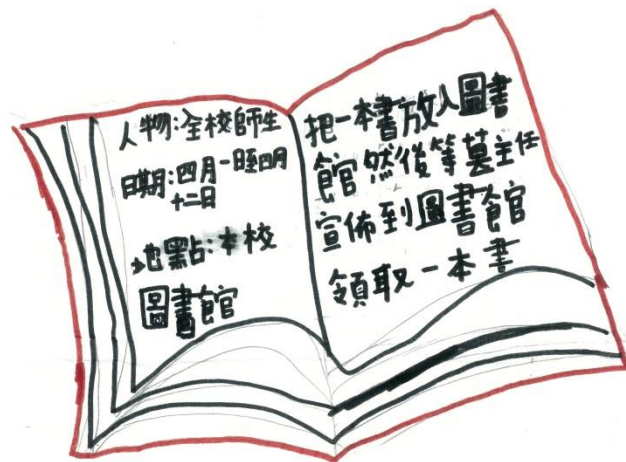 人物:全校師生
日期:四月一日至四月
十二日
地點:本校
圖書館
把一本書放入圖書
館然後等莫主任
宣佈到圖書館
領取一本書